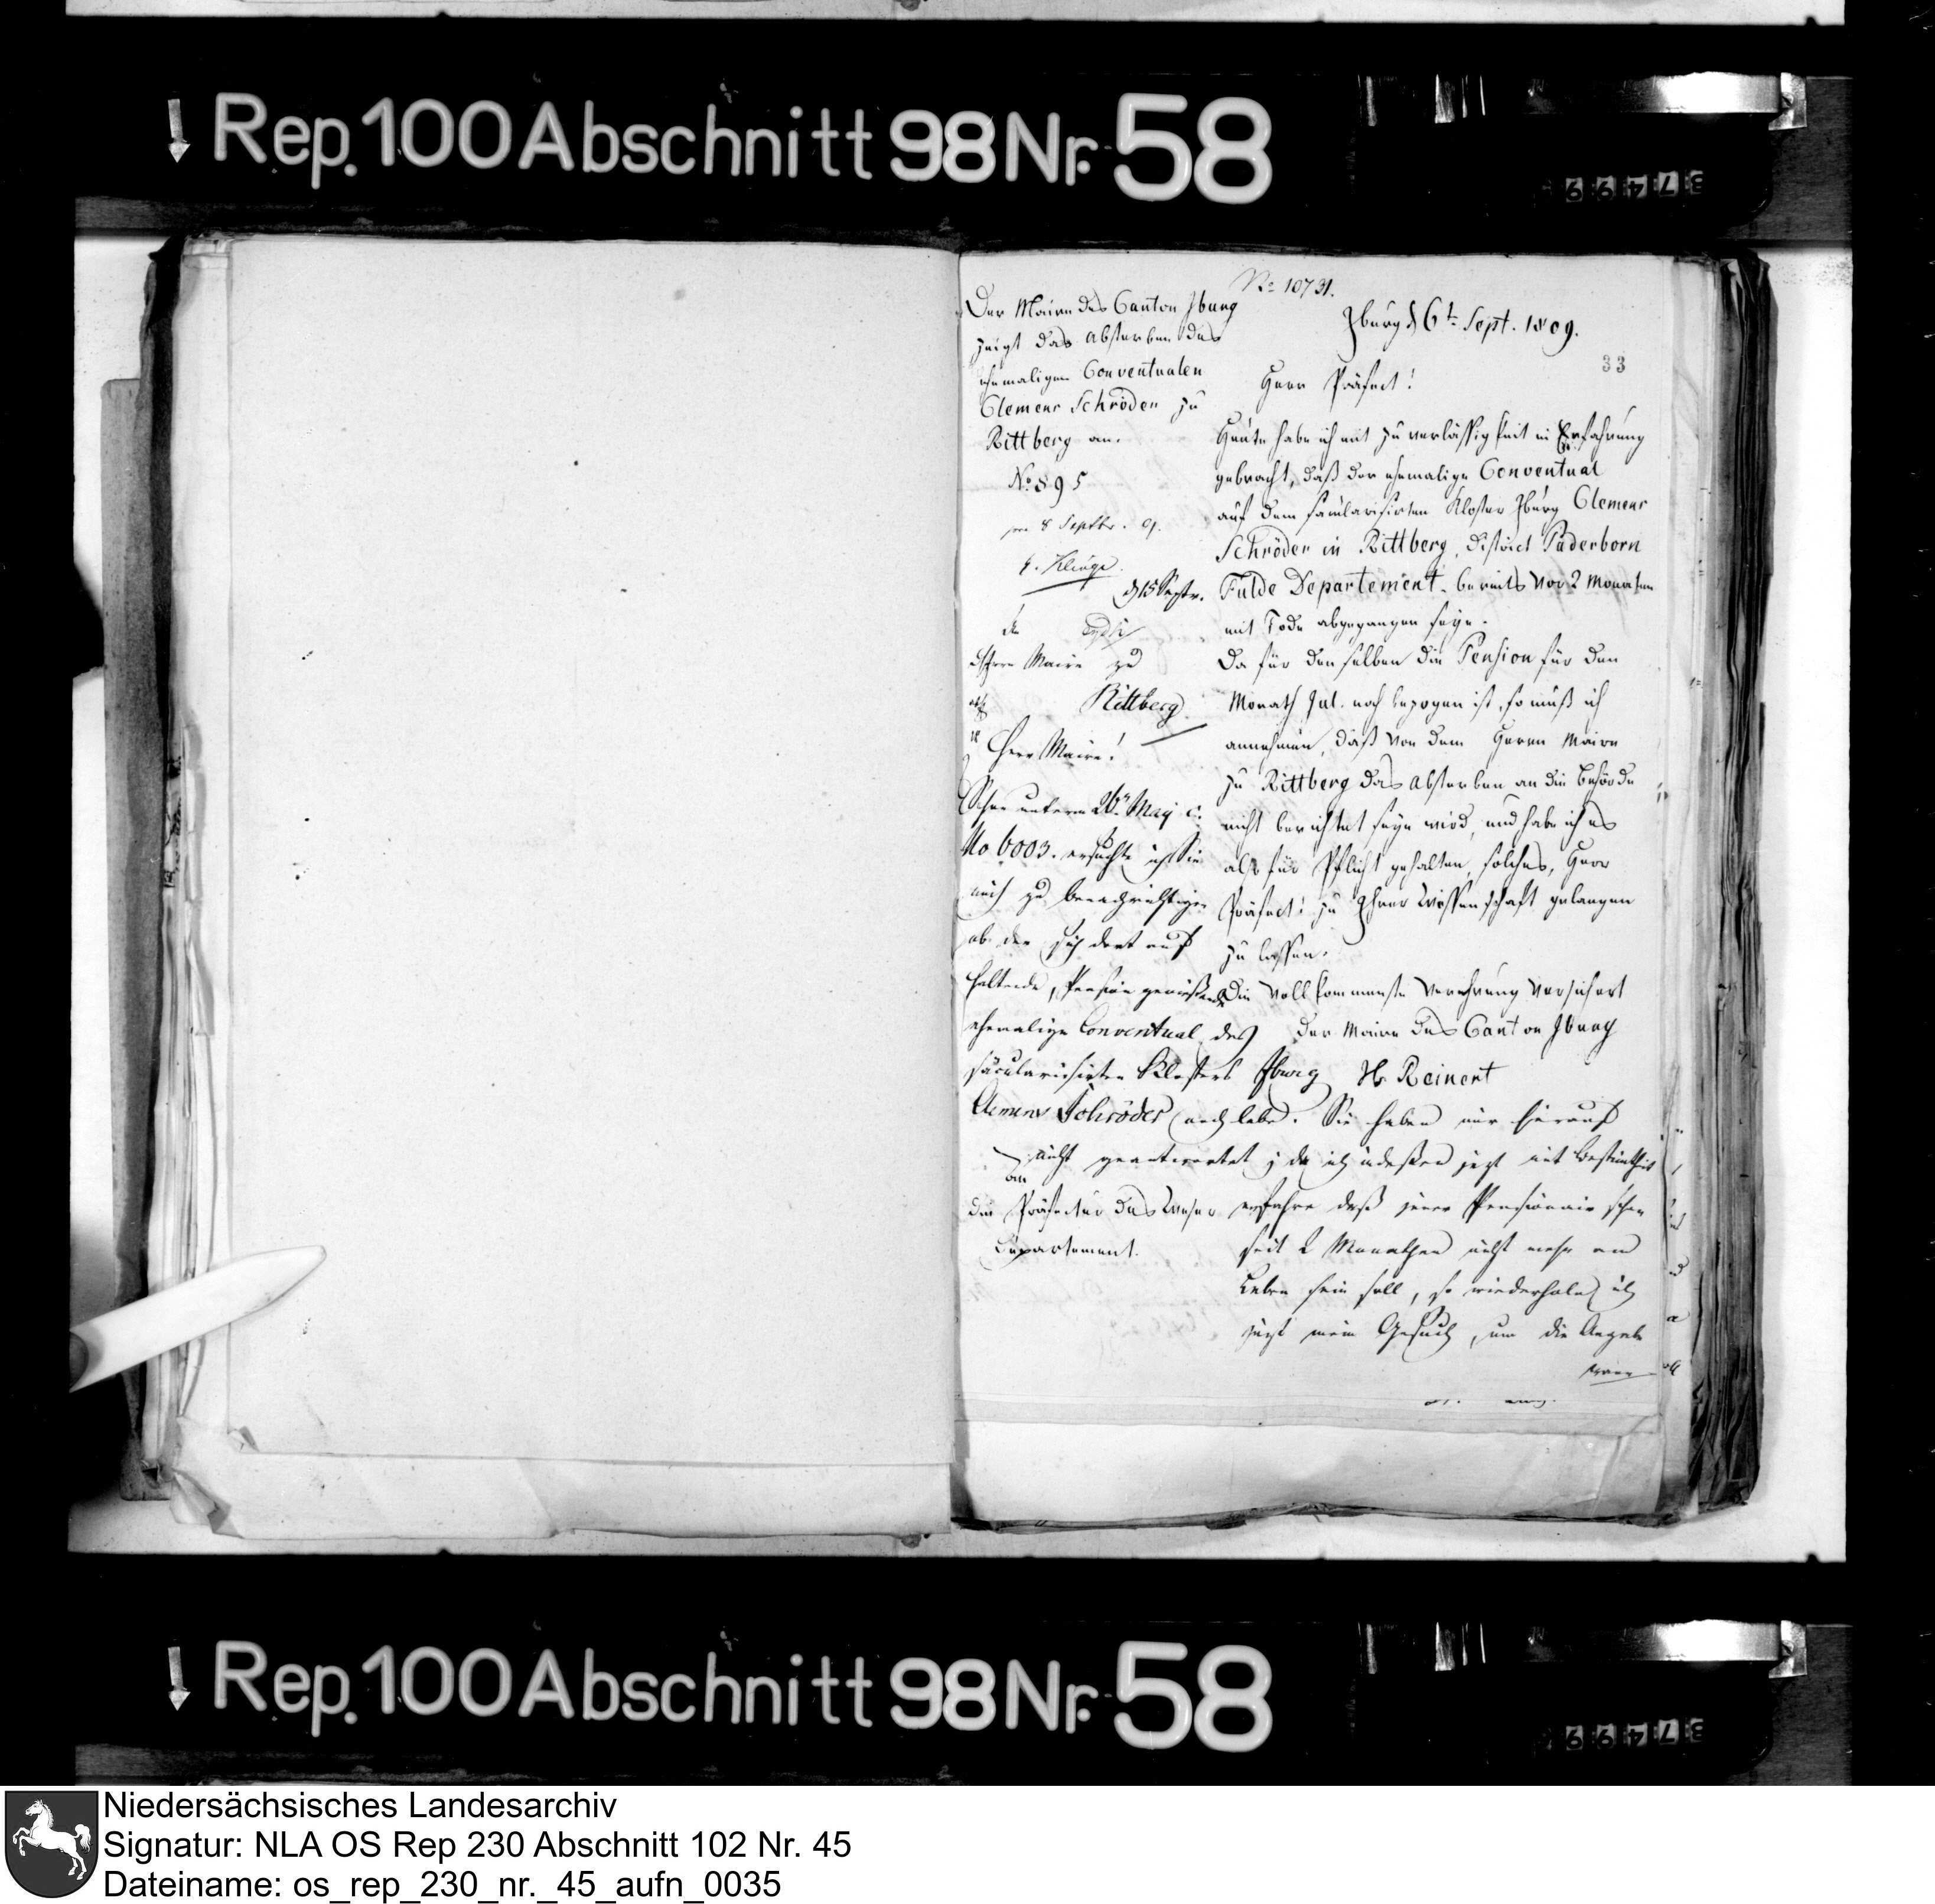 Rep. 100 Abschnitt 98 Nr. 58
37499
No 10731.
Iburg d 6t. Sept. 1809.
33
Der Maire des Canton Iburg
zeigt das Absterben des
ehemaligen Conventualen
Clemens Schröder zu
Rittberg an.
No 895
8 Septbr. 9.
d 15 Septr.
Herrn Maire zu
Rittberg
Herr Maire!
Schon unterm 26n May c.
No 6003. ersuchte ich Sie
mich zu benachrichtigen
ob der sich dort auf
haltende, Pension genießende
ehemalige Conventual des
säcularisirten Klosters Iburg
Clemens Schröder noch lebe. Sie haben mir hierauf
nicht geantwortet; da ich indeßen jezt mit Bestimtheit
erfahre daß jener Pensionair schon
seit 2 Monathen nicht mehr am
Leben sein soll, so wiederhole ich
jezt mein Gesuch, um die Angabe
wann
Herr Präfect!
Heute habe ich mit Zuverlässigkeit in Erfahrung
gebracht, daß der ehemalige Conventual
auf dem säcularisirten Kloster Iburg Clemens
Schröder in Rittberg, District Paderborn
Fulde Departement. bereits vor 2 Monaten
mit Tode abgegangen seye.
Da für denselben die Pension für den
Monath Jul. noch bezogen ist, so muß ich
annehmen, daß von dem Herrn Maire
zu Rittberg das Absterben an die Behörde
nicht berichtet seyn wird, und habe ich es
also für Pflicht gehalten, solches, Herr
Präfect! zu Ihrer Wissenschaft gelangen
zu lassen.
Die vollkommenste Verehrung versichert
Der Maire des Canton Iburg
H. Reinert
An
die Präfectur des Weser
Departement.
Rep. 100 Abschnitt 98 Nr. 58
37499
Niedersächsisches Landesarchiv
Signatur: NLA OS Rep 230 Abschnitt 102 Nr. 45
Dateiname: os_rep_230_nr._45_aufn_0035